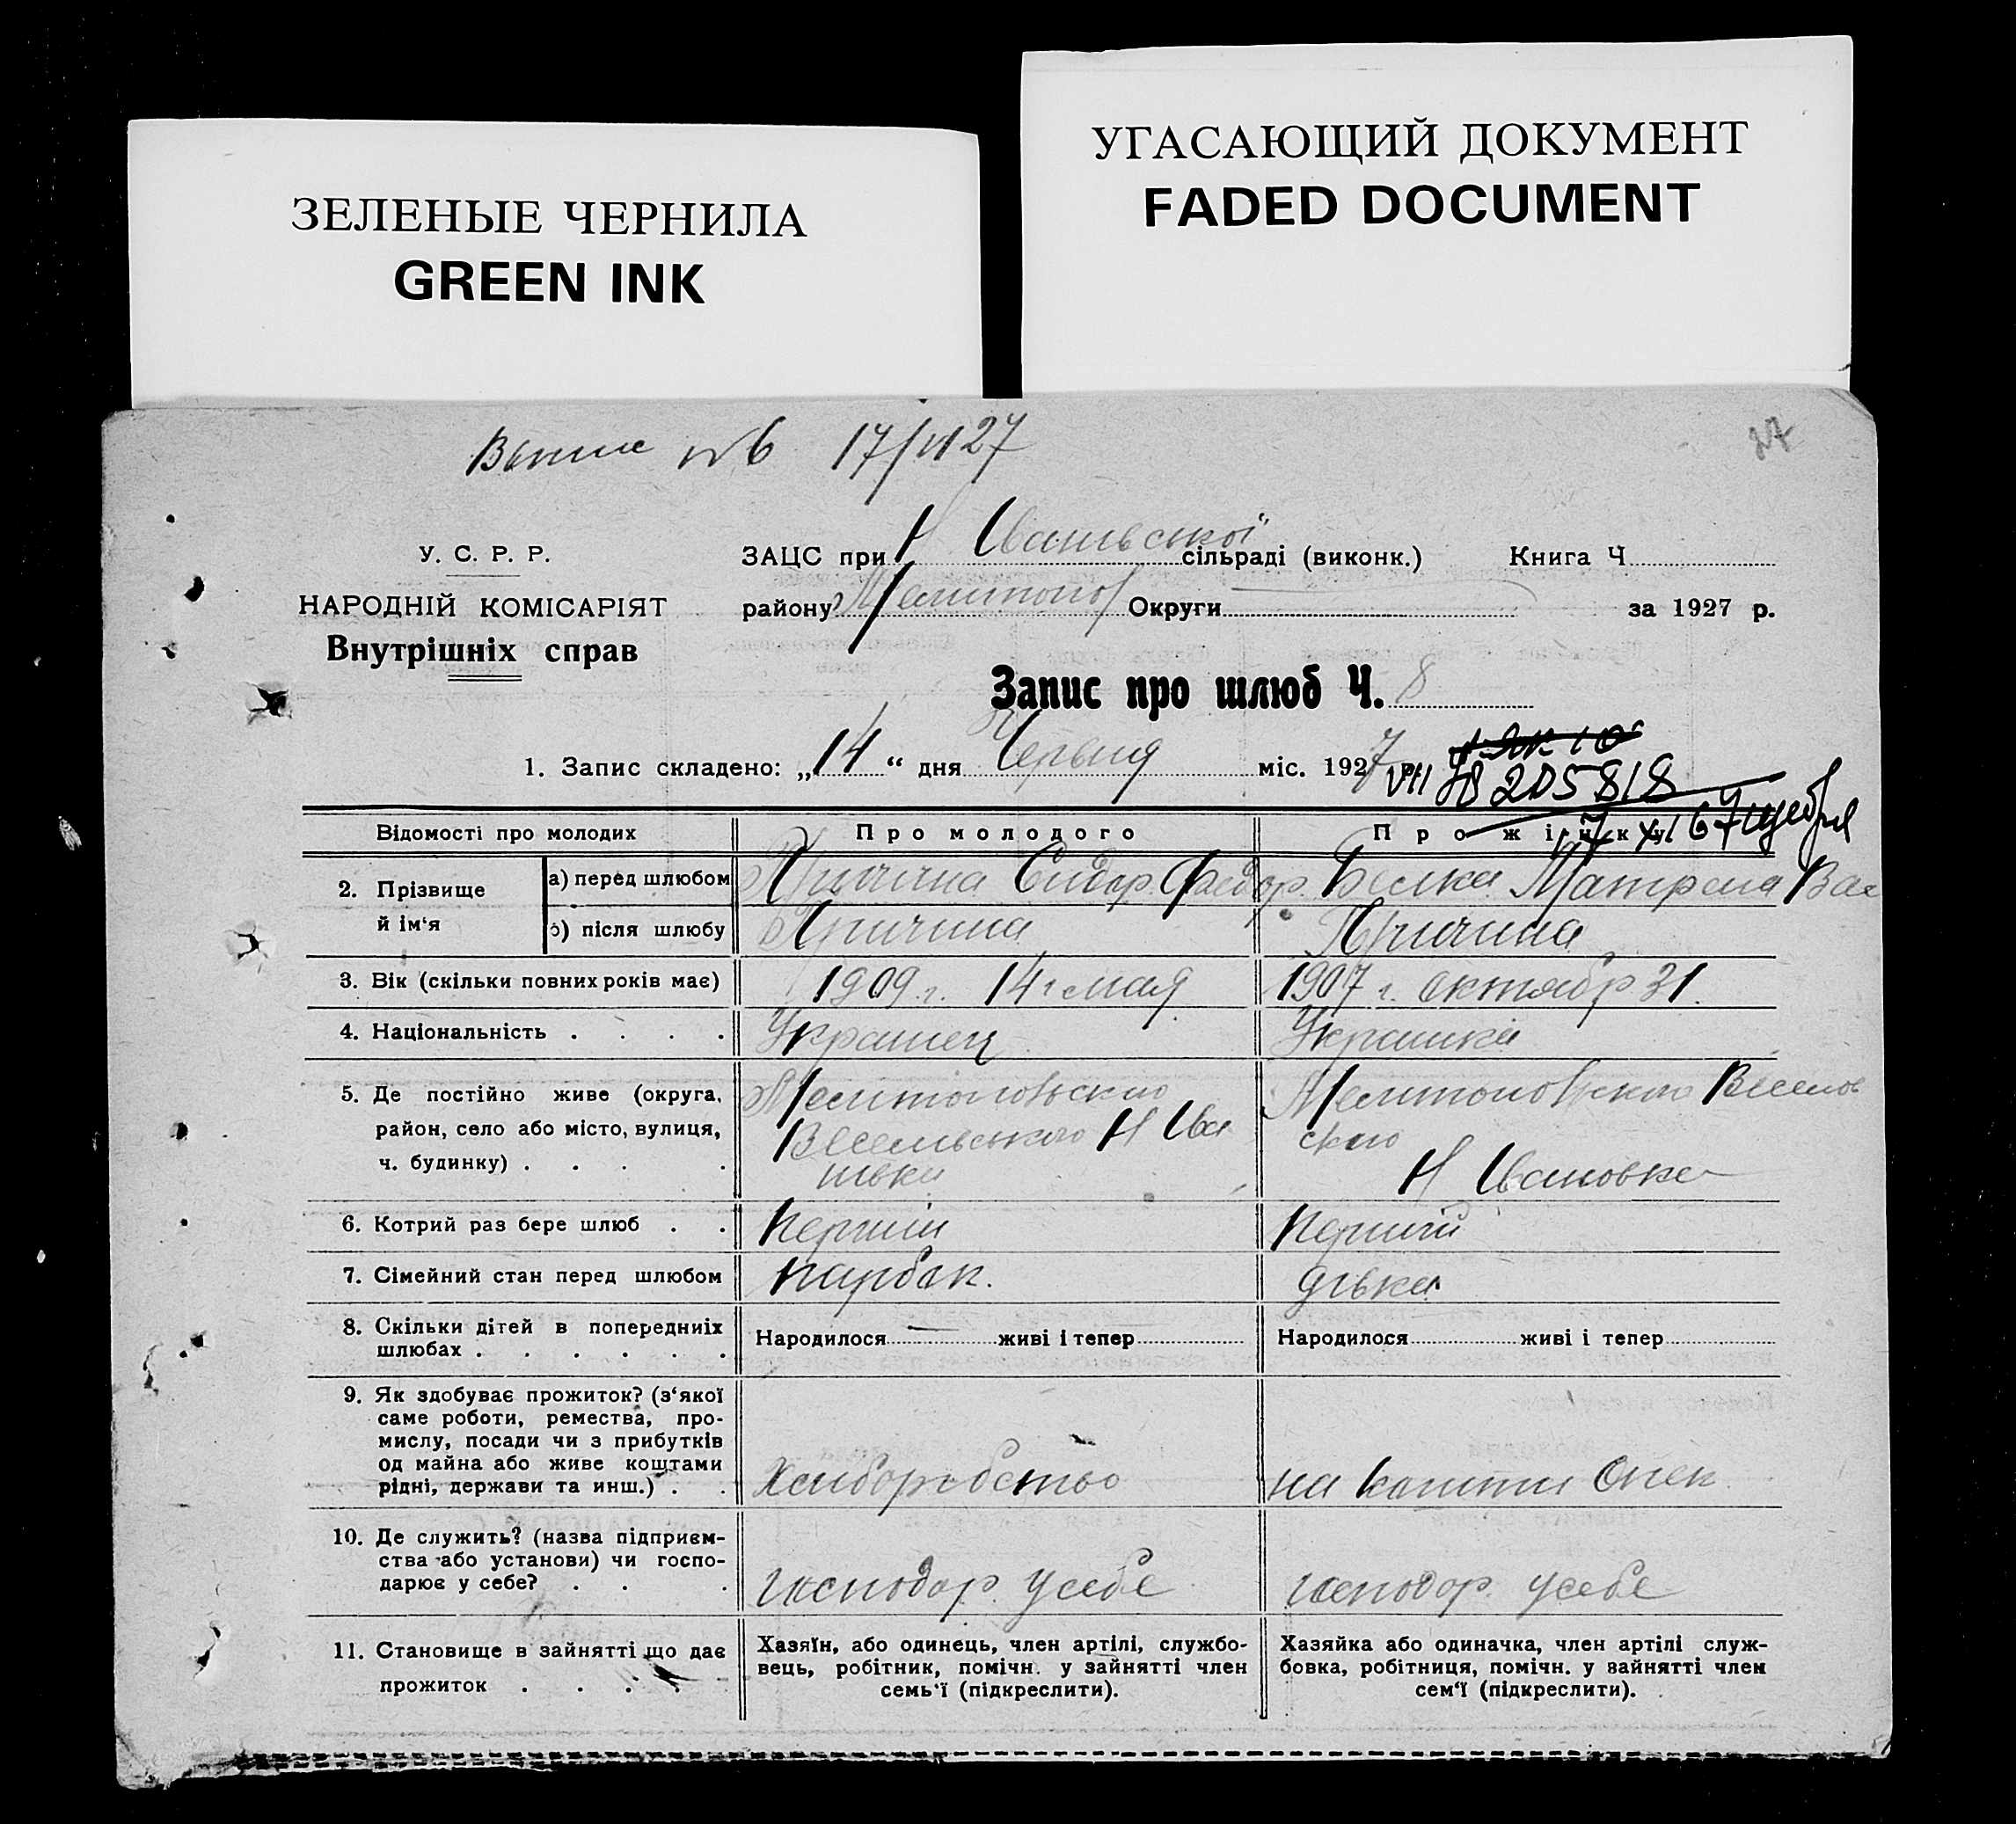 ЗЕЛЕНЫЕ ЧЕРНИЛА
GREEN INK
УГАСАЮЩИЙ ДОКУМЕНТ
FADED DOCUMENT
№6 17/VI 27
У. С. Р. Р.
НАРОДНІЙ КОМІСАРІЯТ
Внутрішніх справ
ЗАЦС при Н Іванівської сільраді (виконк.) Книга Ч
району Мелитопол Округи за 1927 р.
Запис про шлюб Ч. 8
1. Запис складено: „14“ дня Червня міс. 1927 р.
VII ЯВ 205818
Відомості про молодих
Про молодого
Про жінку
2. Прізвище й ім‘я
а) перед шлюбом
Причина Сидор Федор.
Белка Матрена Вас
б) після шлюбу
Причина
Причина
3. Вік (скільки повних років має)
1909 г. 14 мая
1907 г. октябр 31.
4. Національність . . . .
Украинец
Украинка
5. Де постійно живе (округа,
район, село або місто, вулиця,
ч. будинку) . . . .
Мелитопольского
Веселівського Н Іва
нівка
Мелитопольского Веселов
ского
Н Івановка
6. Котрий раз бере шлюб . .
Перший
Перший
7. Сімейний стан перед шлюбом
парубок.
дівка
8. Скільки дітей в попередниіх
шлюбах . . . . . .
Народилося живі і тепер
Народилося живі і тепер
9. Як здобуває прожиток? (з‘якої
саме роботи, ремества, про-
мислу, посади чи з прибутків
од майна або живе коштами
рідні, держави та инш.) . .
Хліборобство
на кошти
10. Де служить? (назва підприєм-
ства або установи) чи госпо-
дарює у себе? . . .
господар. у себе
господар. у себе
11. Становище в зайнятті що дає
прожиток . . . . .
Хазяїн, або одинець, член артілі, службо-
вець, робітник, помічн. у зайнятті член
семь‘ї (підкреслити).
Хазяйка або одиначка, член артілі служ-
бовка, робітниця, помічн. у зайнятті член
сем‘ї (підкреслити).